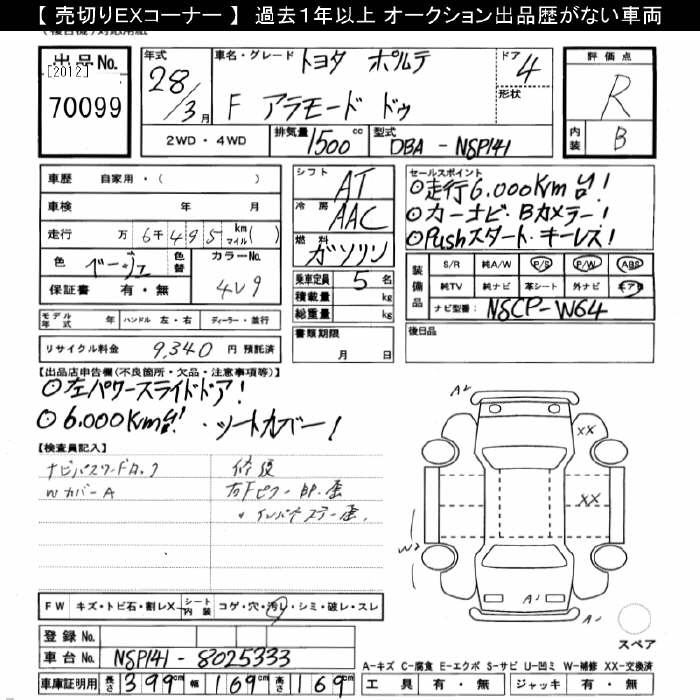 【 売切りEXコーナー 】 過去１年以上 オークション出品歴がない車両
出品No.
[2012]
70099
年式 28/3月
車名・グレード トヨタ ポルテ
F アラモード ドゥ
ドア 4
形状
評価点 R
内装 B
2WD・4WD
排気量 1500 cc
型式 DBA - NSP141
車歴 自家用・( )
車検 年 月
走行 万 6千495 km マイル( )
色 ベージュ 色替
カラーNo. 4V9
保証書 有・無
モデル年式 年 ハンドル 左・右 ディーラー・並行
リサイクル料金 9,340 円 預託済
シフト AT
冷房 AAC
燃料 ガソリン
乗車定員 5 名
積載量 kg
総重量 kg
書類期限
月 日
セールスポイント
◎走行6.000Km台!
◎カーナビ・Bカメラー!
◎Pushスタート・キーレス!
装備品 S/R 純A/W P/S P/W ABS
純TV 純ナビ 革シート 外ナビ エアB
ナビ型番: NSCP-W64
後日品
【出品店申告欄(不良箇所・欠品・注意事項等)】
◎左パワースライドドア!
◎6.000Km台! ・シートカバー!
【検査員記入】
ナビパスワードロック
Wカバー A
修復
右Fピラー
〃 インパネステー歪
A2
XX
XX
W2
A1
A1
スペア
FW キズ・トビ石・割レX シート内装 コゲ・穴・汚レ・シミ・破レ・スレ
登録No.
車台No. NSP141 - 8025333
車庫証明用 長さ 399 cm 幅 169 cm 高さ 169 cm
A-キズ C-腐食 E-エクボ S-サビ U-凹ミ W-補修 XX-交換済
工具 有・無 ジャッキ 有・無